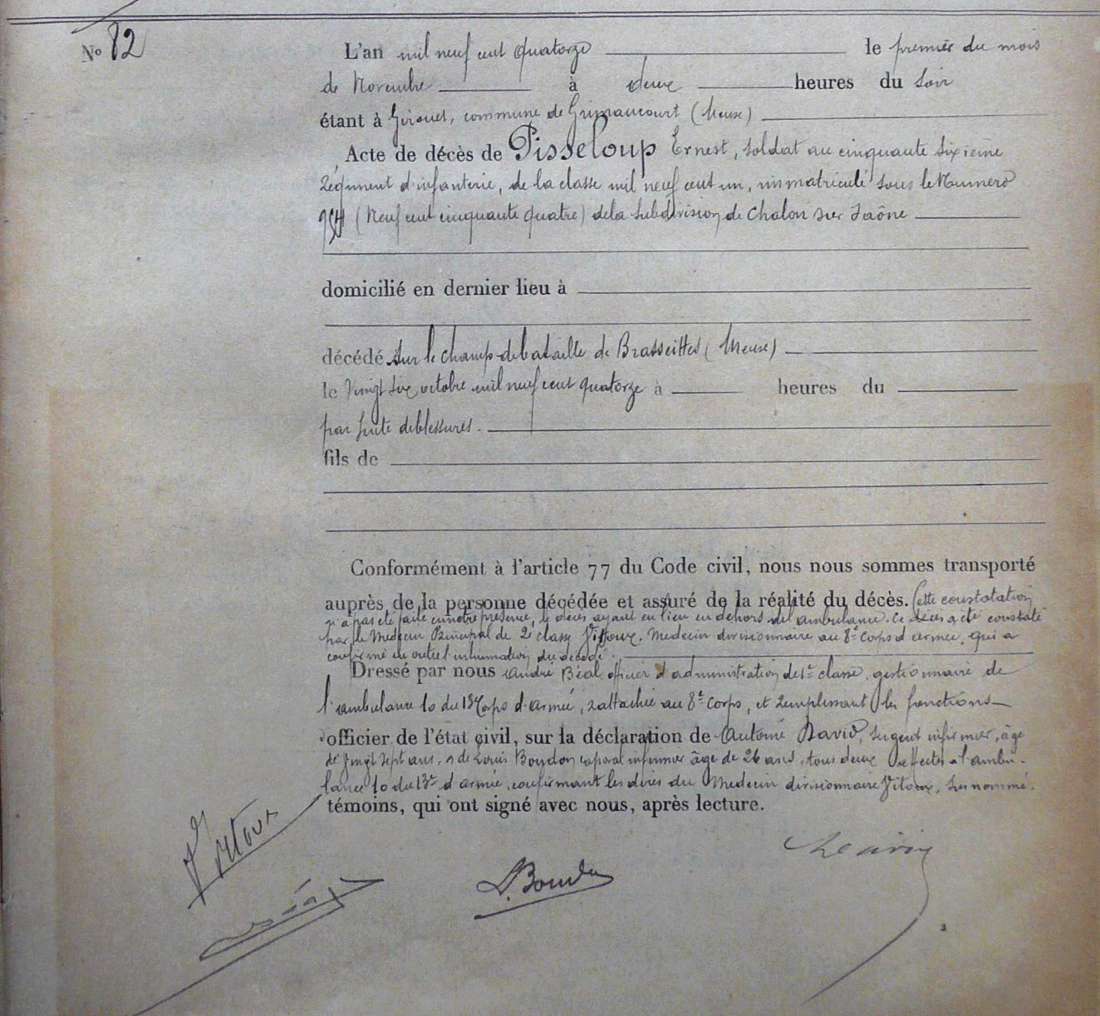 No 82
L'an mil neuf cent quatorze le premier du mois
de Novembre à deux heures du soir
étant à Gironet, commune de Grimaucourt (Meuse)
Acte de décès de Pisseloup Ernest, soldat au cinquante sixième
Régiment d'infanterie, de la classe mil neuf cent un, immatriculé sous le Numéro
954 (Neuf cent cinquante quatre) de la subdivision de Chalon sur Saône
domicilié en dernier lieu à
décédé sur le champ de bataille de Brasseittes (Meuse)
le vingt six octobre mil neuf cent quatorze à heures du
par suite de blessures.
fils de
Conformément à l'article 77 du Code civil, nous nous sommes transporté
auprès de la personne décédée et assuré de la réalité du décès. Cette constatation
n'a pas été faite en notre présence, le décès ayant eu lieu en dehors de l'ambulance. Ce décès a été constaté
par le Médecin Principal de 2e classe Vitoux, Médecin divisionnaire au 8e Corps d'armée, qui a
confirmé en outre l'inhumation du décédé.
Dressé par nous André Béal officier d'administration de 1re classe, gestionnaire de
l'ambulance 10 du 13e Corps d'Armée, rattachée au 8e Corps, et remplissant les fonctions
officier de l'état civil, sur la déclaration de Antoine David, sergent infirmier, âgé
de vingt sept ans, de Louis Boudon caporal infirmier âgé de 26 ans, tous deux affectés à l'ambu-
lance 10 du 13e d'armée, confirmant les dires du Médecin divisionnaire Vitoux, susnommé.
témoins, qui ont signé avec nous, après lecture.
Vitoux
Béal
L. Boudon